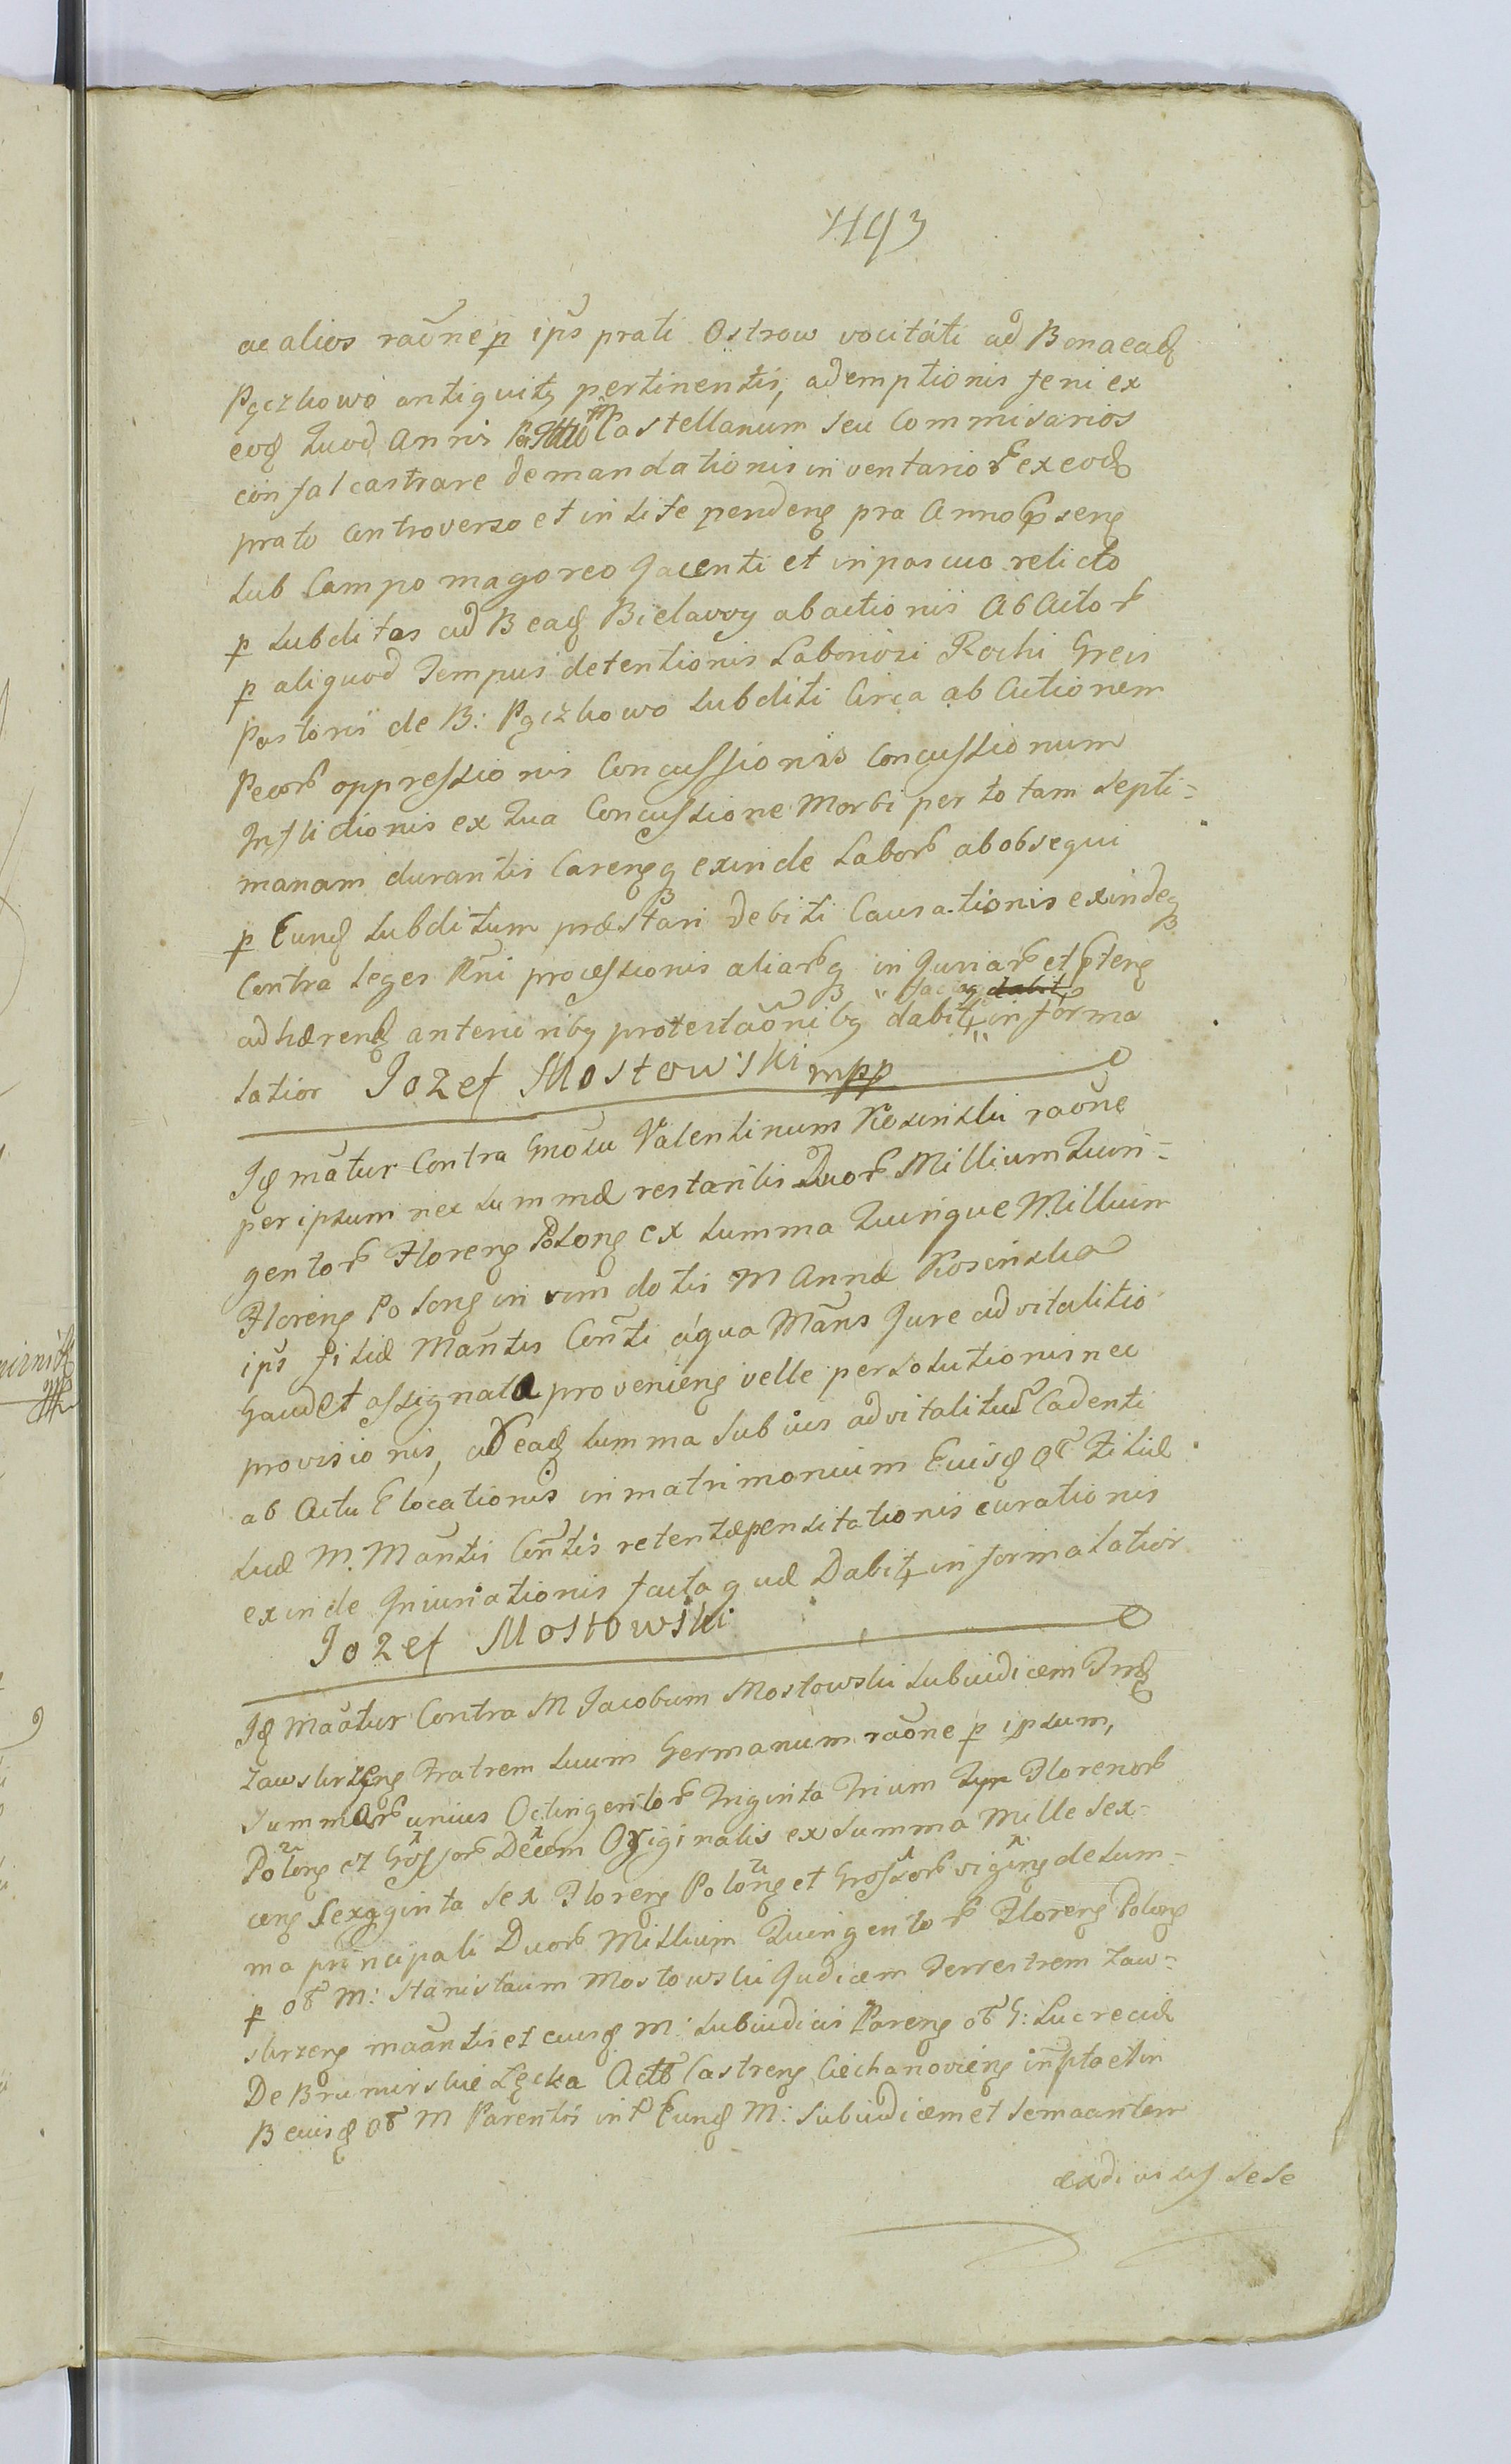 493
ac alios raõne p ips prati Ostrow vocitati ad Bona eadq
Pączkowo antiquitq pertinentis, ademptionis feni ex
eodq Quod Annis Castellanum seu Commisarios
confalcastrare demandationis inventario ex eodq
prato Controverso et in Lite pendenq pra Anno pnsenq
sub Campo magoreo Jacenti et in pascuo relicto
p subditos ad B eadq Bielawy abactionis Ab Actor
p aliquod Tempus detentionis Laboriosi Rochi Greis
Pastoris de B: Pączkowo subditi Circa ab Actionem
Pecor oppressionis Concussionis Concussionum
Inflictionis ex qua Concussione Morbi per totam septi=
manam durantis Carenqq exinde Labor ab obsequi
p Eundq subditum præstari debiti Causationis exindeq
Contra Leges Rñi processionis aliarq injuriar et ptenq
adhærendq anterioribq protestaõnibq dabitr informa
latior Jozef Mostowski mpp
Idq mãtur Contra Gnosu Valentinum Kosinski raõne
per ipsum nec summæ restantis Duor Millium Quin=
gentor Florenq Polonq ex summa Quinque Millium
Florenq Polonq in vim dotis M Annæ Kosinska
ips filiæ Mantis Conti a qua Mãns Jure advitalitio
Gaudet assignata provenienq velle persolutionis nec
provisionis, ab eadq summa sub ius advitalitus Cadenti
ab Actu Elocationis in matrimonium Eiusdq oc Filiæ
suæ M. Mantis Contis retentæ pensitationis curationis
exinde Iniuriationis facta quæ Dabitr informa latior
Jozef Mostowski
Idq maatur Contra M Jacobum Mostowski subiudicem Trrq
Zawskrzynq Fratrem suum Germanum raõne p ipsum,
summar unius Octingentor Triginta Trium Florenor
Polonq et Grossor Decem Originalis ex summa Mille sex=
cenq sexaginta sex Florenq Polonq et Grossor viginq de sum=
ma principali Duor Millium Quingentor Florenq Polonq
p oc M: Stanislaum Mostowski Judicem Terrestrem Zaw=
skrzenq maantis et eiusdq M: subiudicis Parenq oc G: Lucreciæ
De Brumirskie Łęcka Act Castrenq Ciechanovienq inspta et in
B eiusdq oc M Parentis int Eundq M: subiudicem et se maantem
exdivisis sese